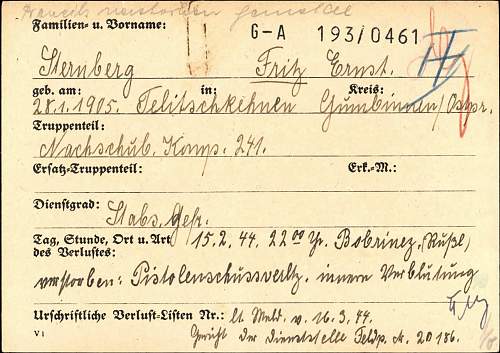 bereits verstorben gemeldet
Familien- u. Vorname: G-A 193/0461
Sternberg Fritz Ernst.
geb. am: in: Kreis:
28.1.1905. Gumbinnen/Ostpr.
Truppenteil:
Nachschub. Komp. 241.
Ersatz-Truppenteil: Erk.-M.:
Dienstgrad: Stabs. Gefr.
Tag, Stunde, Ort u. Art 15.2.44. 22⁰⁰ Bobrinez, (Rußl)
des Verlustes:
verstorben: Pistolenschussverltz. innere Verblutung
Urschriftliche Verlust-Listen Nr.: lt. Meld. v. 16.3.44.
V1 Gericht der Dienststelle Feldp. N. 20186.